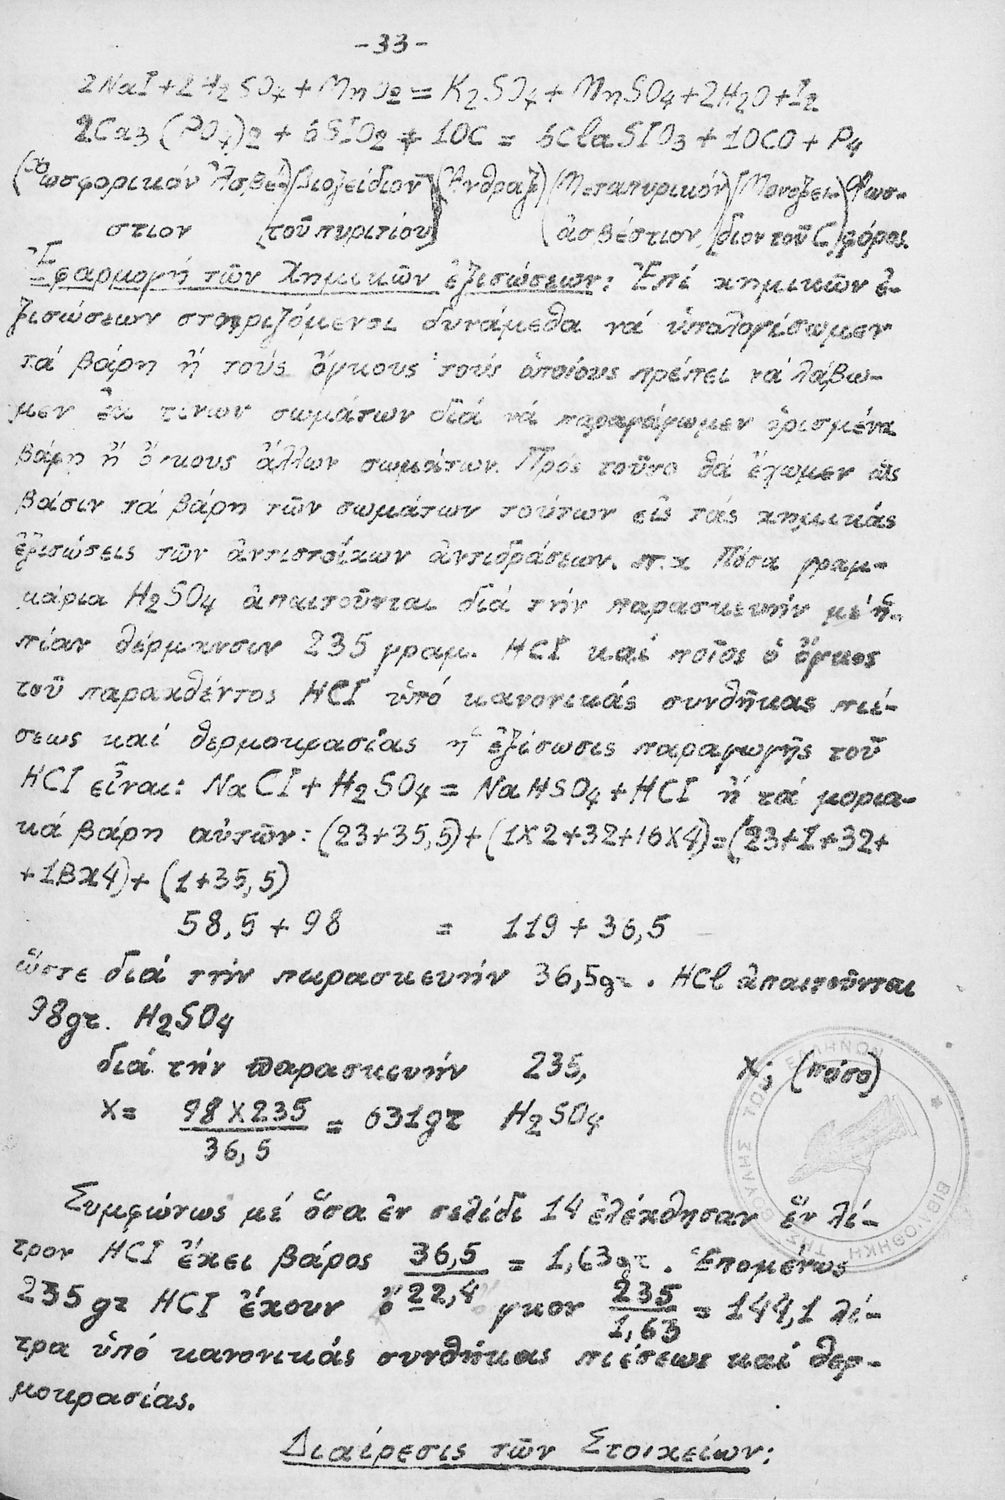 -33-
2NaI+2H2SO4+MnO2=K2SO4+MnSO4+2H2O+I2
2Ca3(PO4)2+6SIO2+10C=6CaSIO3+10CO+P4
(Φωσφορικόν Ἀσβέ-) (Διοξείδιον) (Ἄνθραξ) (Μεταπυρικόν) (Μονοξεί-) Φωσ-
στιον (τοῦ πυριτίου) (ἀσβέστιον) (διον τοῦ C) φόρος
Ἐφαρμογή τῶν Χημικῶν ἐξισώσεων: Ἐπί χημικῶν ἐ-
ξισώσεων στηριζόμενοι δυνάμεθα νά ὑπολογίσωμεν
τά βάρη ἤ τούς ὄγκους τούς ὁποίους πρέπει νά λάβω-
μεν ἐκ τινων σωμάτων διά νά παραγάγωμεν ὁρισμένα
βάρη ἤ ὄγκους ἄλλων σωμάτων. Πρός τοῦτο θά ἔχωμεν ὡς
βάσιν τά βάρη τῶν σωμάτων τούτων εἰς τάς χημικάς
ἐξισώσεις τῶν ἀντιστοίχων ἀντιδράσεων. π.χ Πόσα γραμ-
μάρια H2SO4 ἀπαιτοῦνται διά τήν παρασκευήν μέ ἤ-
πίαν θέρμανσιν 235 γραμ. HCI καί ποῖος ὁ ὄγκος
τοῦ παραχθέντος HCI ὑπό κανονικάς συνθήκας πιέ-
σεως καί θερμοκρασίας ἡ ἐξίσωσις παραγωγῆς τοῦ
HCI εἶναι: NaCI+H2SO4=NaHSO4+HCI ἤ τά μορια-
κά βάρη αὐτῶν: (23+35,5)+(1X2+32+16X4)=(23+1+32+
+1Bx4)+(1+35,5)
58,5+98 = 119+36,5
ὥστε διά τήν παρασκευήν 36,5gr. HCl ἀπαιτοῦνται
98gr. H2SO4
διά τήν παρασκευήν 235, X; (πόσο)
X= 98X235 / 36,5 = 631gr H2SO4
Συμφώνως μέ ὅσα ἐν σελίδι 14 ἐλέχθησαν ἕν λί-
τρον HCI ἔχει βάρος 36,5 / 22,4 = 1,63gr. Ἑπομένως
235gr HCI ἔχουν ὄγκον 235 / 1,63 = 144,1 λί-
τρα ὑπό κανονικάς συνθήκας πιέσεως καί θερ-
μοκρασίας.
Διαίρεσις τῶν Στοιχείων:
ΒΙΒΛΙΟΘΗΚΗ ΤΗΣ ΒΟΥΛΗΣ ΤΩΝ ΕΛΛΗΝΩΝ